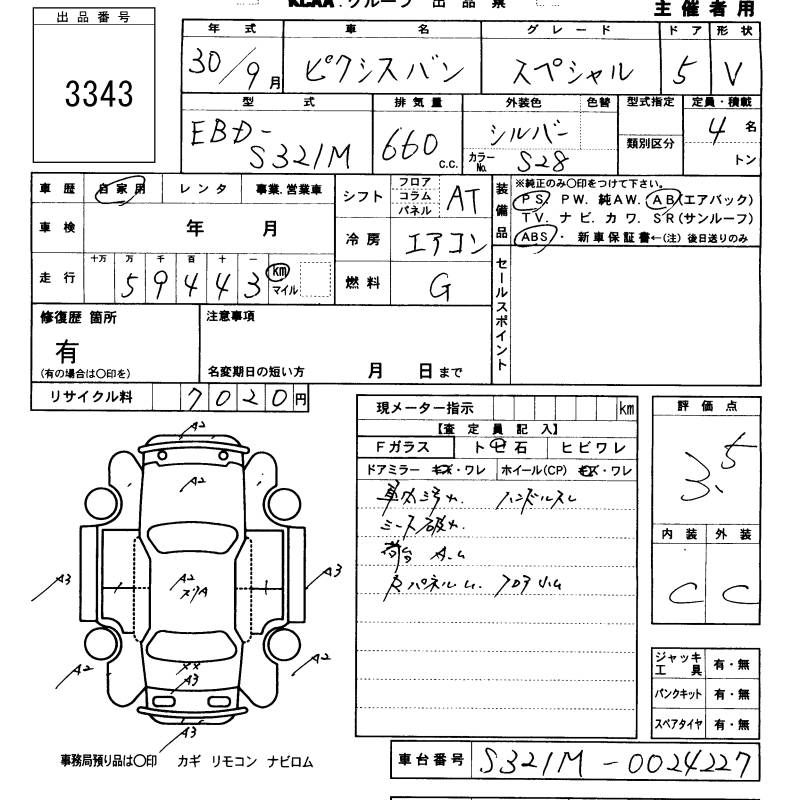 KCAA.グループ 出品票
主催者用
出品番号
3343
年式 車名 グレード ドア 形状
30/9月 ピクシスバン スペシャル 5 V
型式 排気量 外装色 色替 型式指定 定員・積載
EBD-
S321M
660 C.C.
シルバー
カラーNo. S28
類別区分
4名
トン
車歴 自家用 レンタ 事業.営業車
車検 年 月
走行 十万 万 千 百 十 一
59443 km
マイル
シフト フロア コラム パネル AT
冷房 エアコン
燃料 G
装備品
※純正のみ〇印をつけて下さい。
PS PW. 純AW. AB(エアバック)
TV. ナビ. カワ. SR(サンルーフ)
ABS・ 新車保証書←(注) 後日送りのみ
セールスポイント
修復歴 箇所
有
(有の場合は〇印を)
注意事項
名変期日の短い方 月 日まで
リサイクル料 7020円
現メーター指示 km
【査定員記入】
Fガラス トビ石 ヒビワレ
ドアミラー キズ・ワレ ホイール(CP) キズ・ワレ
車内汚れ. ハンドルスレ
シート破れ.
荷台 A.ム
フロアム
評価点
3.5
内装 外装
C C
A2
A2
A2
A3
A3
A2
A2
××
A3
A3
ジャッキ工具 有・無
パンクキット 有・無
スペアタイヤ 有・無
事務局預り品は〇印 カギ リモコン ナビロム
車台番号 S321M-0024227